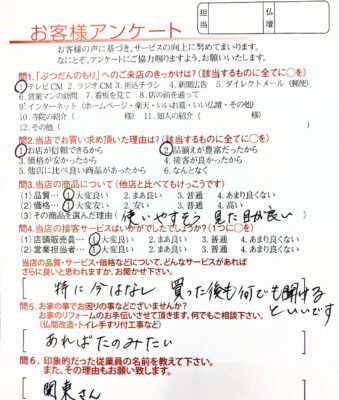 お客様アンケート
担当
仏壇
お客様の声に基づき、サービスの向上に努めてまいります。
なにとぞ、アンケートにご協力賜りますよう、お願いいたします。
問1.「ぶつだんのもり」へのご来店のきっかけは？（該当するものに全てに○を）
1.テレビCM 2.ラジオCM 3.折込チラシ 4.新聞広告 5.ダイレクトメール（郵便）
6.営業マンの訪問 7.看板を見て 8.店の前を通って
9.インターネット（ホームページ・楽天・いいお墓・いい仏壇・その他）
10.寺院の紹介（ 様） 11.知人の紹介（ 様）
12.その他（ ）
問2.当店でお買い求め頂いた理由は？（該当するものに全てに○を）
1.お店が信頼できるから 2.品揃えが豊富だったから
3.価格が安かったから 4.接客が良かったから
5.他店に比べ良い商品があったから 6.なんとなく
問3.当店の商品について（他店と比べてもけっこうです）
(1)品質… 1.大変良い 2.まあ良い 3.普通 4.あまり良くない
(2)価格… 1.大変良い 2.安い 3.普通 4.高い
(3)その商品を選んだ理由（使いやすそう 見た目が良い）
問4.当店の接客サービスはいかがでしたでしょうか？(1つに○を)
(1)店頭販売員…1.大変良い 2.まあ良い 3.普通 4.あまり良くない
(2)営業担当者…1.大変良い 2.まあ良い 3.普通 4.あまり良くない
当店の品質・サービス・価格などについて、どんなサービスがあれば
さらに良いと思われますか、お聞かせ下さい。
特に今はなし 買った後も何でも聞ける
といいです
問5.お家の事でお困りの事などございませんか？
お家のリフォームのお手伝いさせて頂きます。何でもご相談下さい。
（仏間改造・トイレ手すり付工事など）
あればたのみたい
問6.印象的だった従業員の名前を教えて下さい。
また、その理由もお願い致します。
関東さん